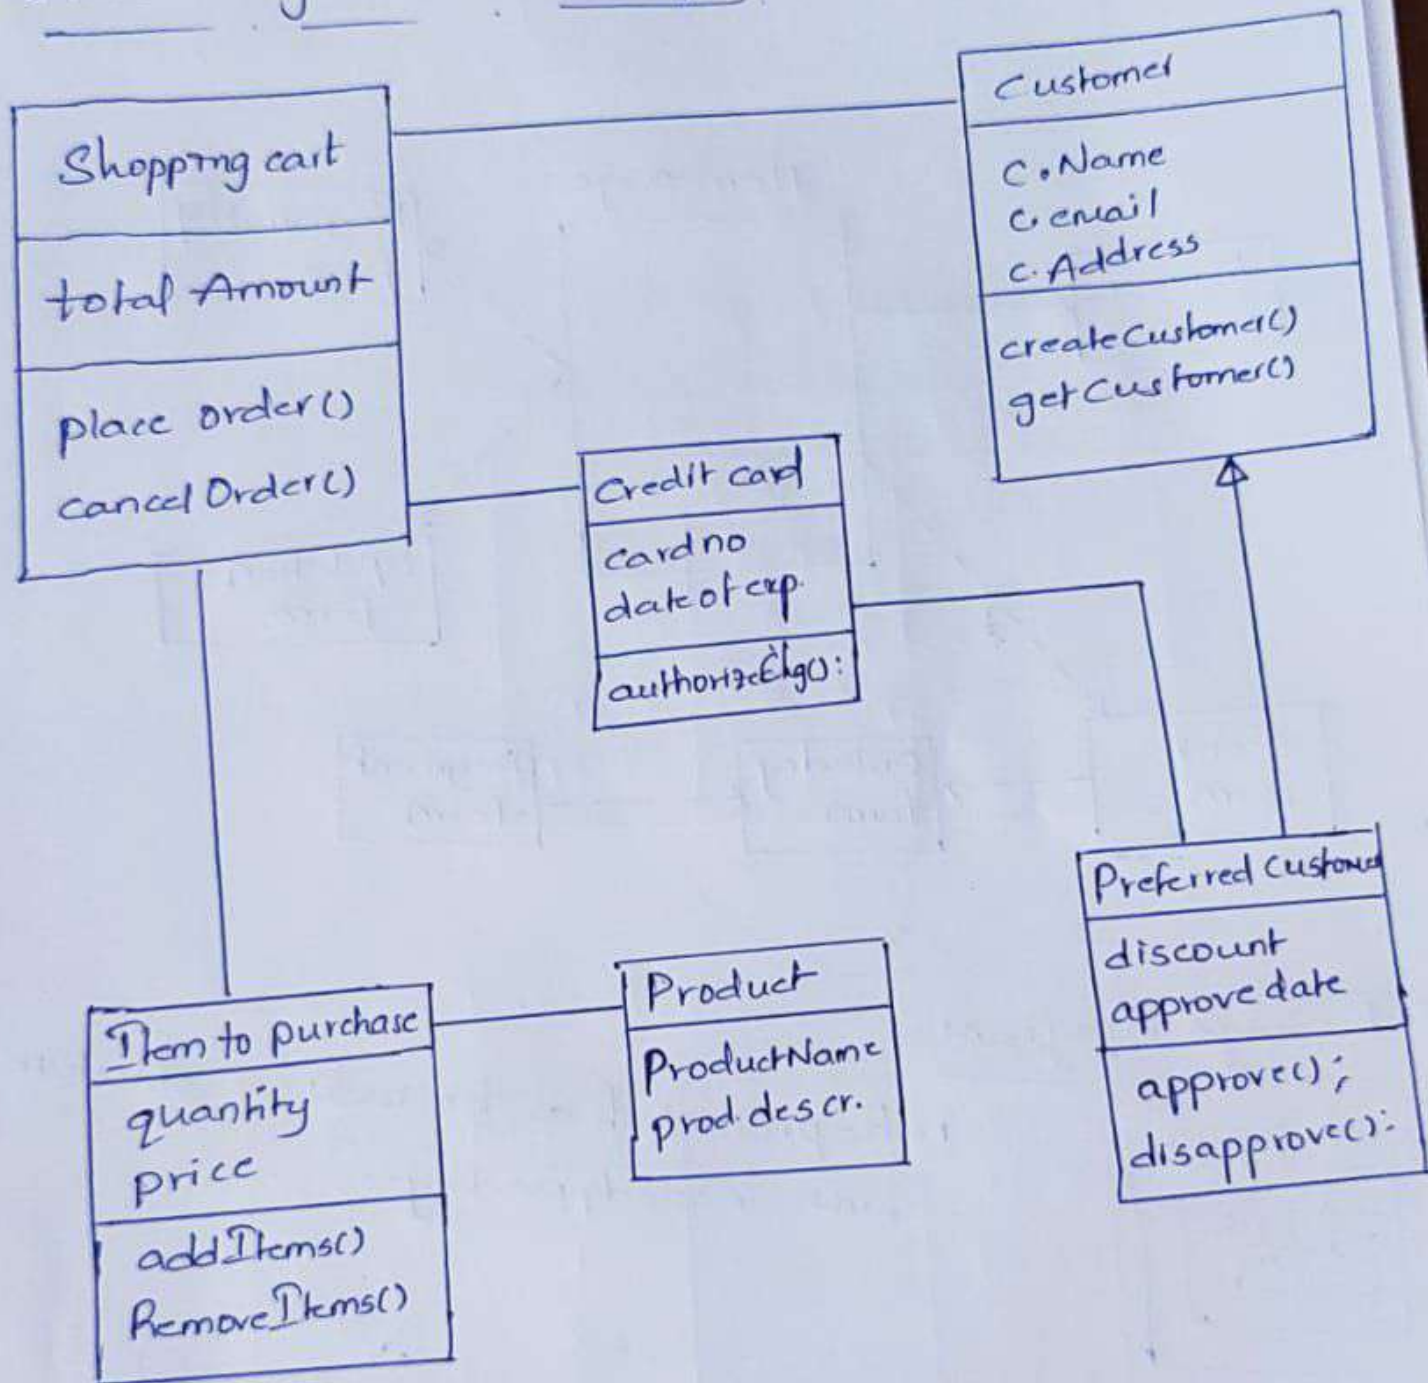 Shopping cart
total Amount
place order()
cancel Order()
Customer
C.Name
c.email
c.Address
createCustomer()
getCustomer()
Credit card
card no
date of exp.
authorizeChg():
Preferred Customer
discount
approve date
approve();
disapprove():
Item to purchase
quantity
price
addItems()
RemoveItems()
Product
ProductName
prod.descr.